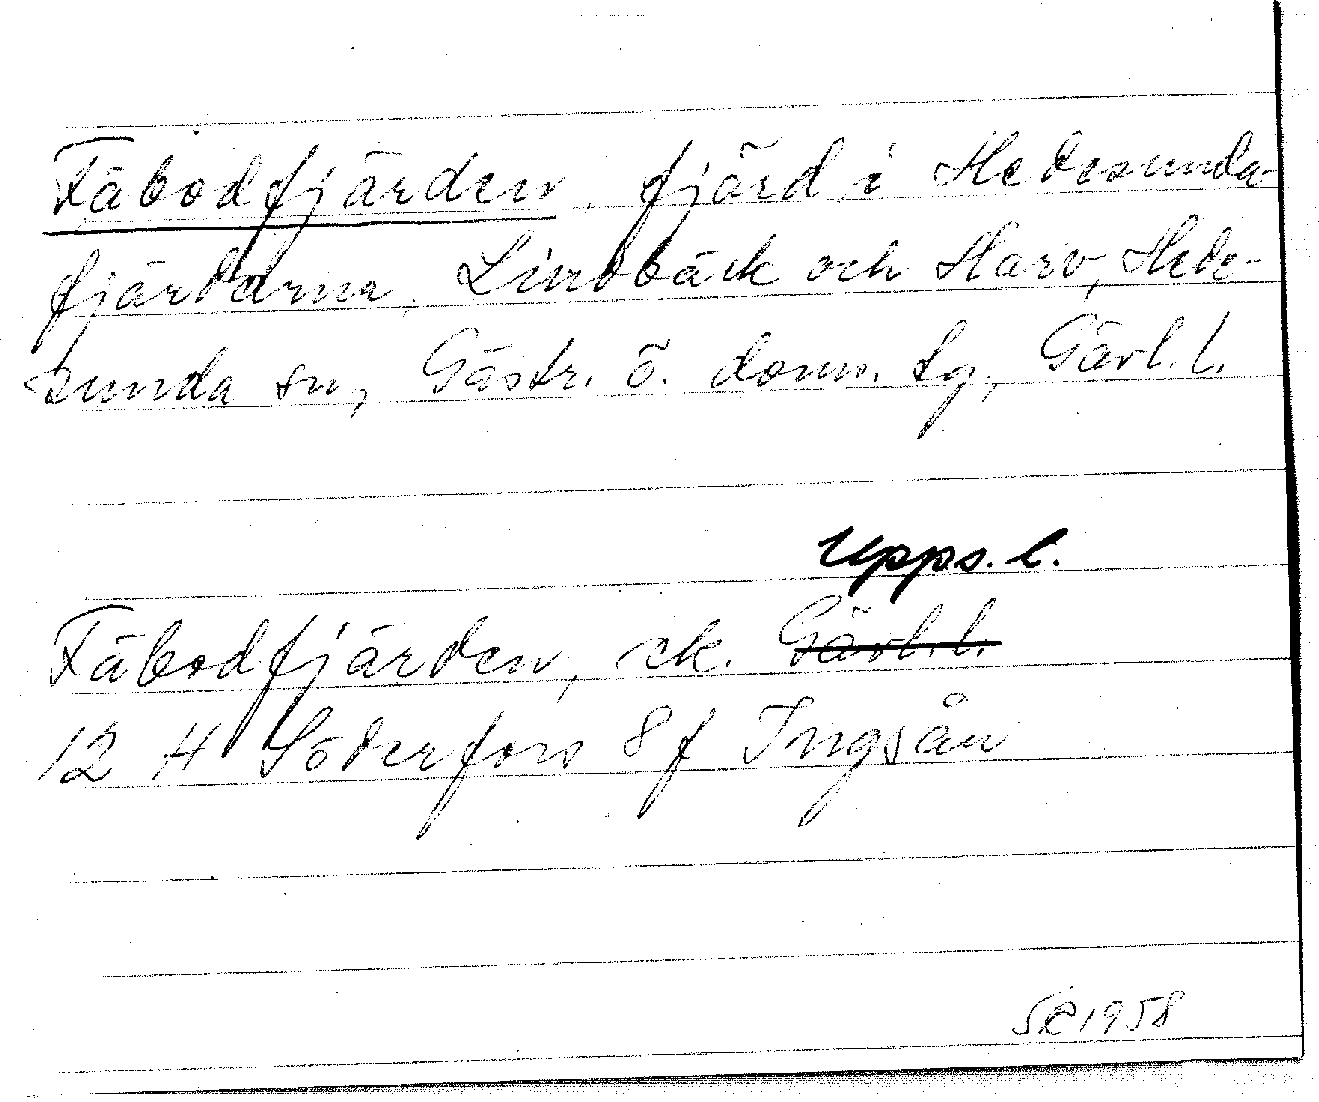 Fäbodfjärden, fjärd i Hedesunda-
fjärdarna, Lindbäck och Harv, Hede-
sunda sn, Gästr. ö. doms. tg, Gävl. l.
Upps. l.
Fäbodfjärden, ek. Gävl. l.
12 H Söderfors 8 f Ingsån
SE 1958